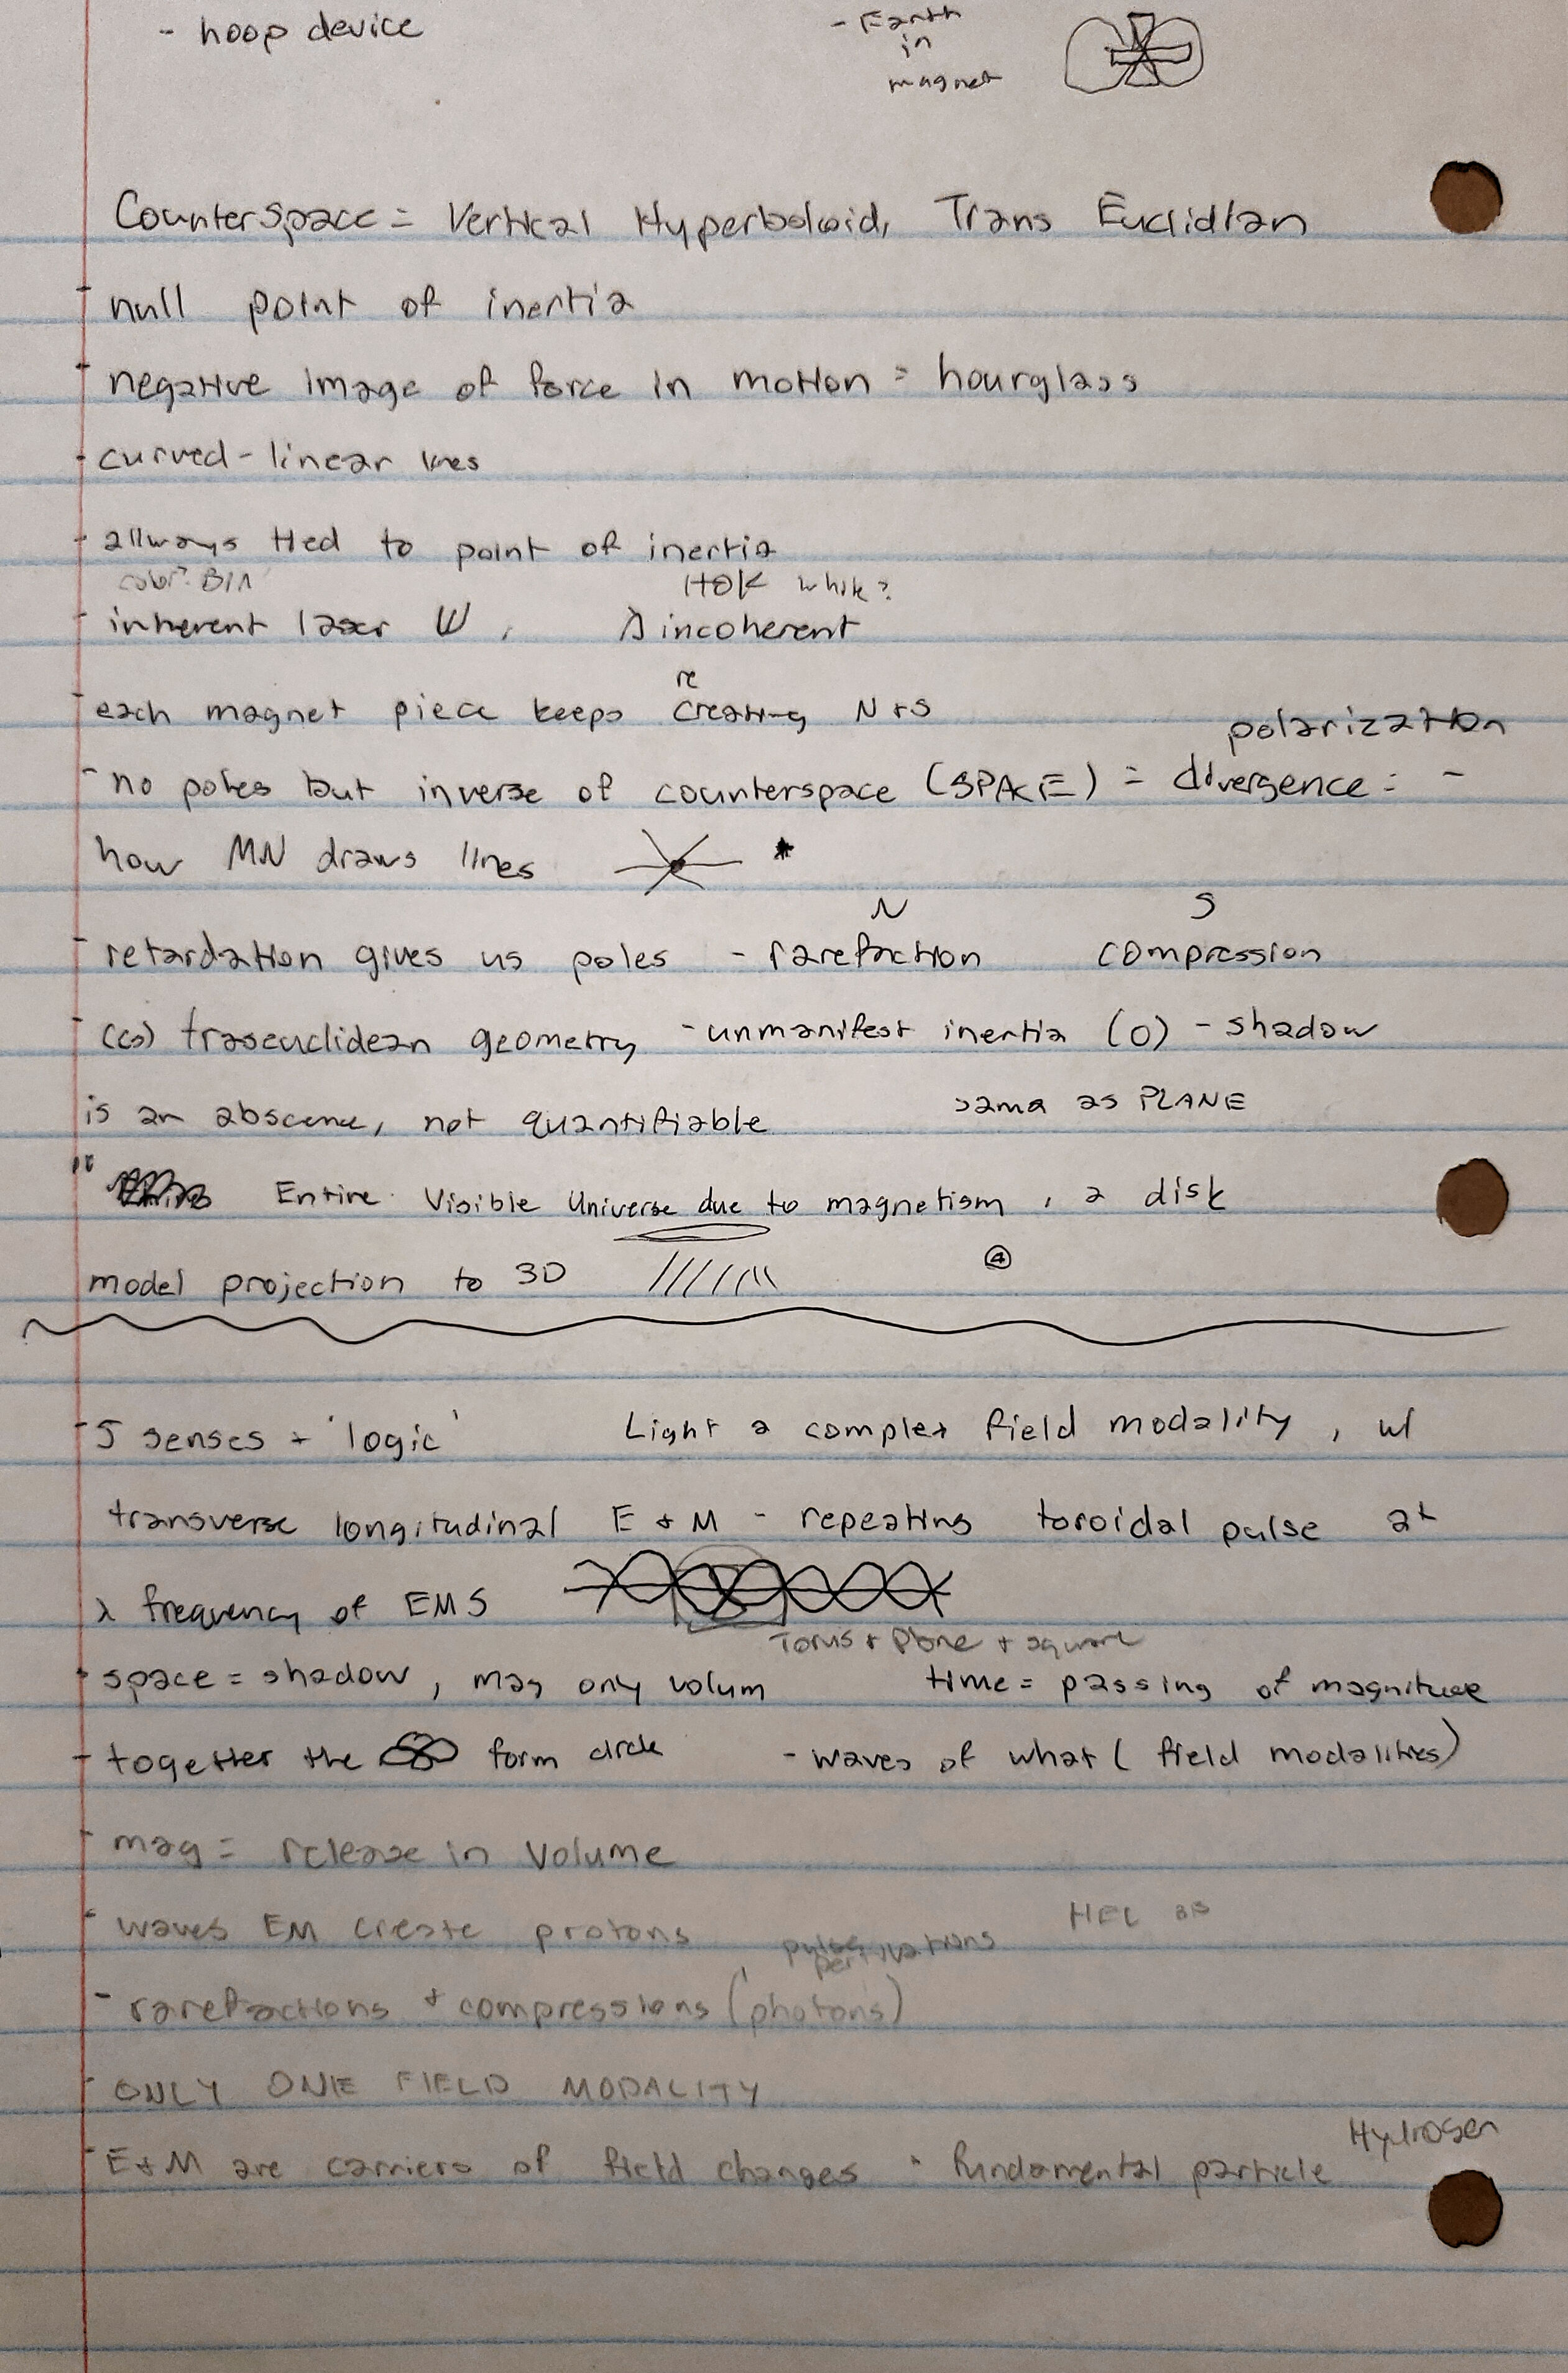 - hoop device
- Earth
in
magnet
Counterspace = Vertical Hyperboloid, Trans Euclidian
- null point of inertia
- negative image of force in motion = hourglass
- curved-linear lines
- allways tied to point of inertia
color? white?
- inherent laser , incoherent
re
- each magnet piece keeps creating N + S
polarization
- no poles but inverse of counterspace (SPACE) = divergence = -
how MN draws lines
N S
- retardation gives us poles - rarefaction compression
- (cs) traseuclidean geometry - unmanifest inertia (0) - shadow
is an abscence, not quantifiable same as PLANE
" Entire Visible Universe due to magnetism, a disk
model projection to 3D 4
- 5 senses + 'logic' Light a complex field modality, w/
transverse longitudinal E + M - repeating toroidal pulse at
λ frequency of EMS
Torus + Plane + square
- space = shadow, mag only volum time = passing of magnitude
- together the form circle - waves of what (field modalities)
- mag = release in volume
- waves EM create protons
pulse
- rarefactions + compressions (photons)
- ONLY ONE FIELD MODALITY
Hydrogen
- E+M are carriers of field changes · fundamental particle